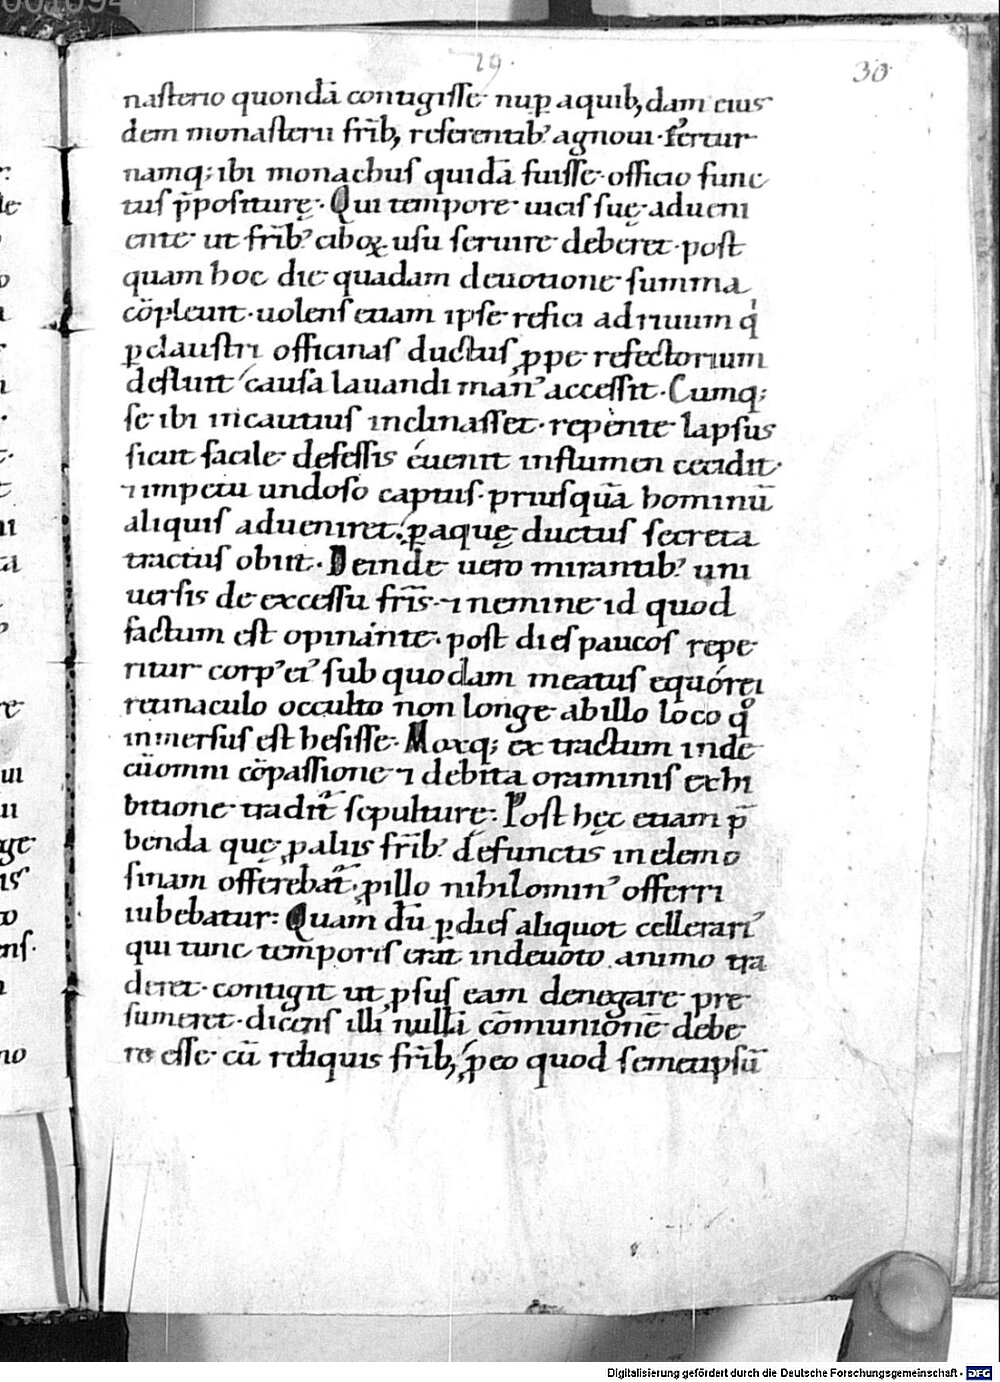 29.
30
nasterio quondā contigisse nup̄ aquib;dam eius
dem monasterii fr̄ib; referentib᾿ agnoui. Fertur
namq; ibi monachus quidā fuisse officio func
tus p̄positurę. Qui tempore uicis suę adueni
ente ut fr̄ib᾿ ciboꝝ usu seruire deberet. post
quam hoc die quadam deuotione summa
cōpleuit. uolens etiam ipse refici ad riuum qͥ
ꝑ claustri officinas ductus ꝓpe refectorium
defluit causa lauandi man᾿ accessit. Cumq;
se ibi incautius inclinasset. repente lapsus
sicut facile defessis euenit in flumen cecidit.
⁊ impetu undoso captus. priusquā hominū
aliquis adueniret. ꝑ aquę ductus secreta
tractus obiit. Deinde uero mirantib᾿ uni
uersis de excessu fr̄is. ⁊ nemine id quod
factum est opinante. post dies paucos repe
ritur corp᾿ ei᾿ sub quodam meatus equorei
retinaculo occulto non longe ab illo loco qͦ
inmersus est hesisse. Moxq; extractum inde
cū omni cōpassione ⁊ debita oraminis exhi
bitione tradit̄ sepulturę. Post hęc etiam p̄
benda quę ꝓ aliis fr̄ib᾿ defunctis in elemo
sinam offerebat̄. ꝓ illo nihilomin᾿ offerri
iubebatur. Quam dū ꝑ dies aliquot cellerari᾿
qui tunc temporis erat indeuoto animo tra
deret. contigit ut ꝓsus eam denegare pre
sumeret. dicens illi nullā cōmunionē debe
re esse cū reliquis fr̄ib; ꝓ eo quod semetipsū
Digitalisierung gefördert durch die Deutsche Forschungsgemeinschaft - DFG